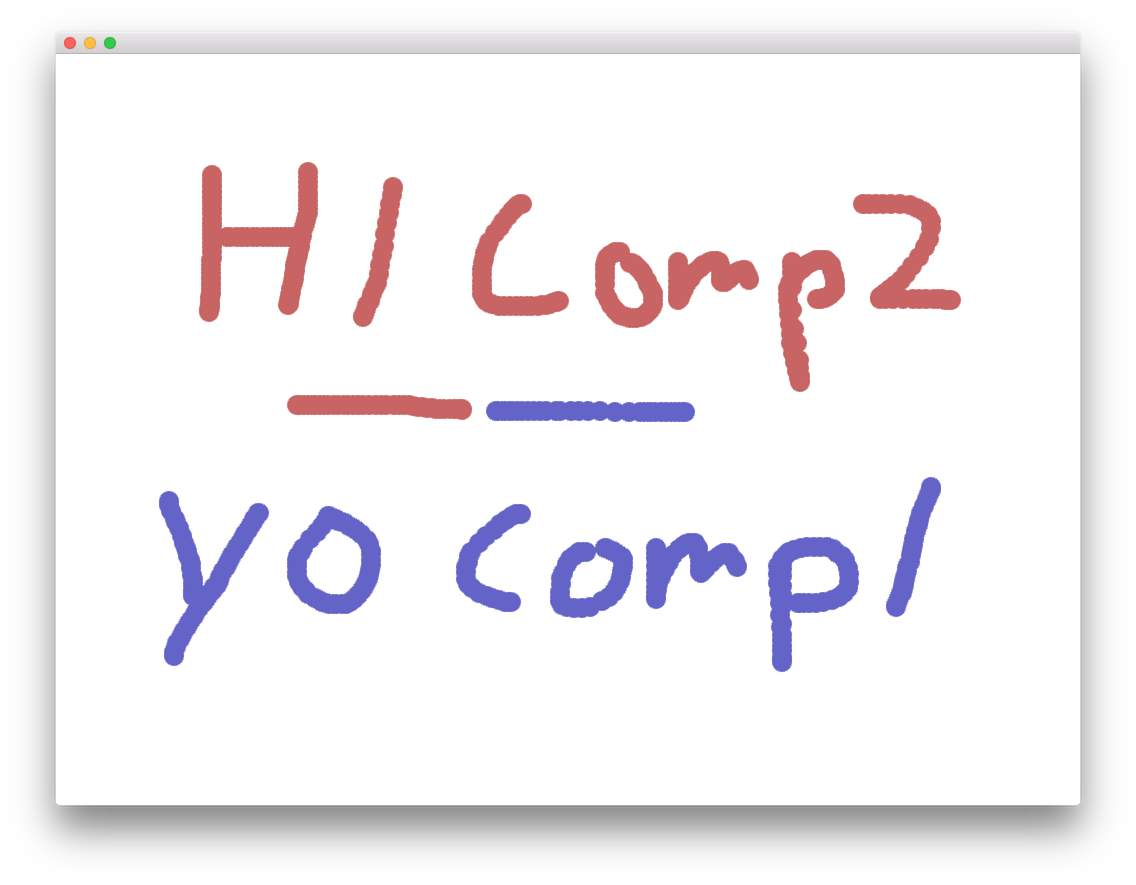 HI Comp2
YO Comp1